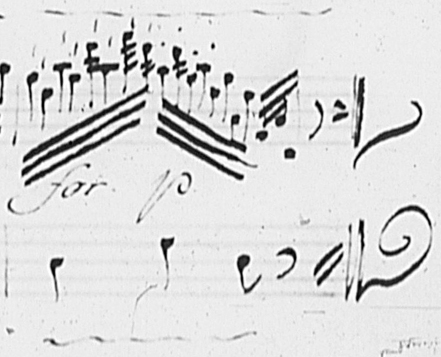 for p